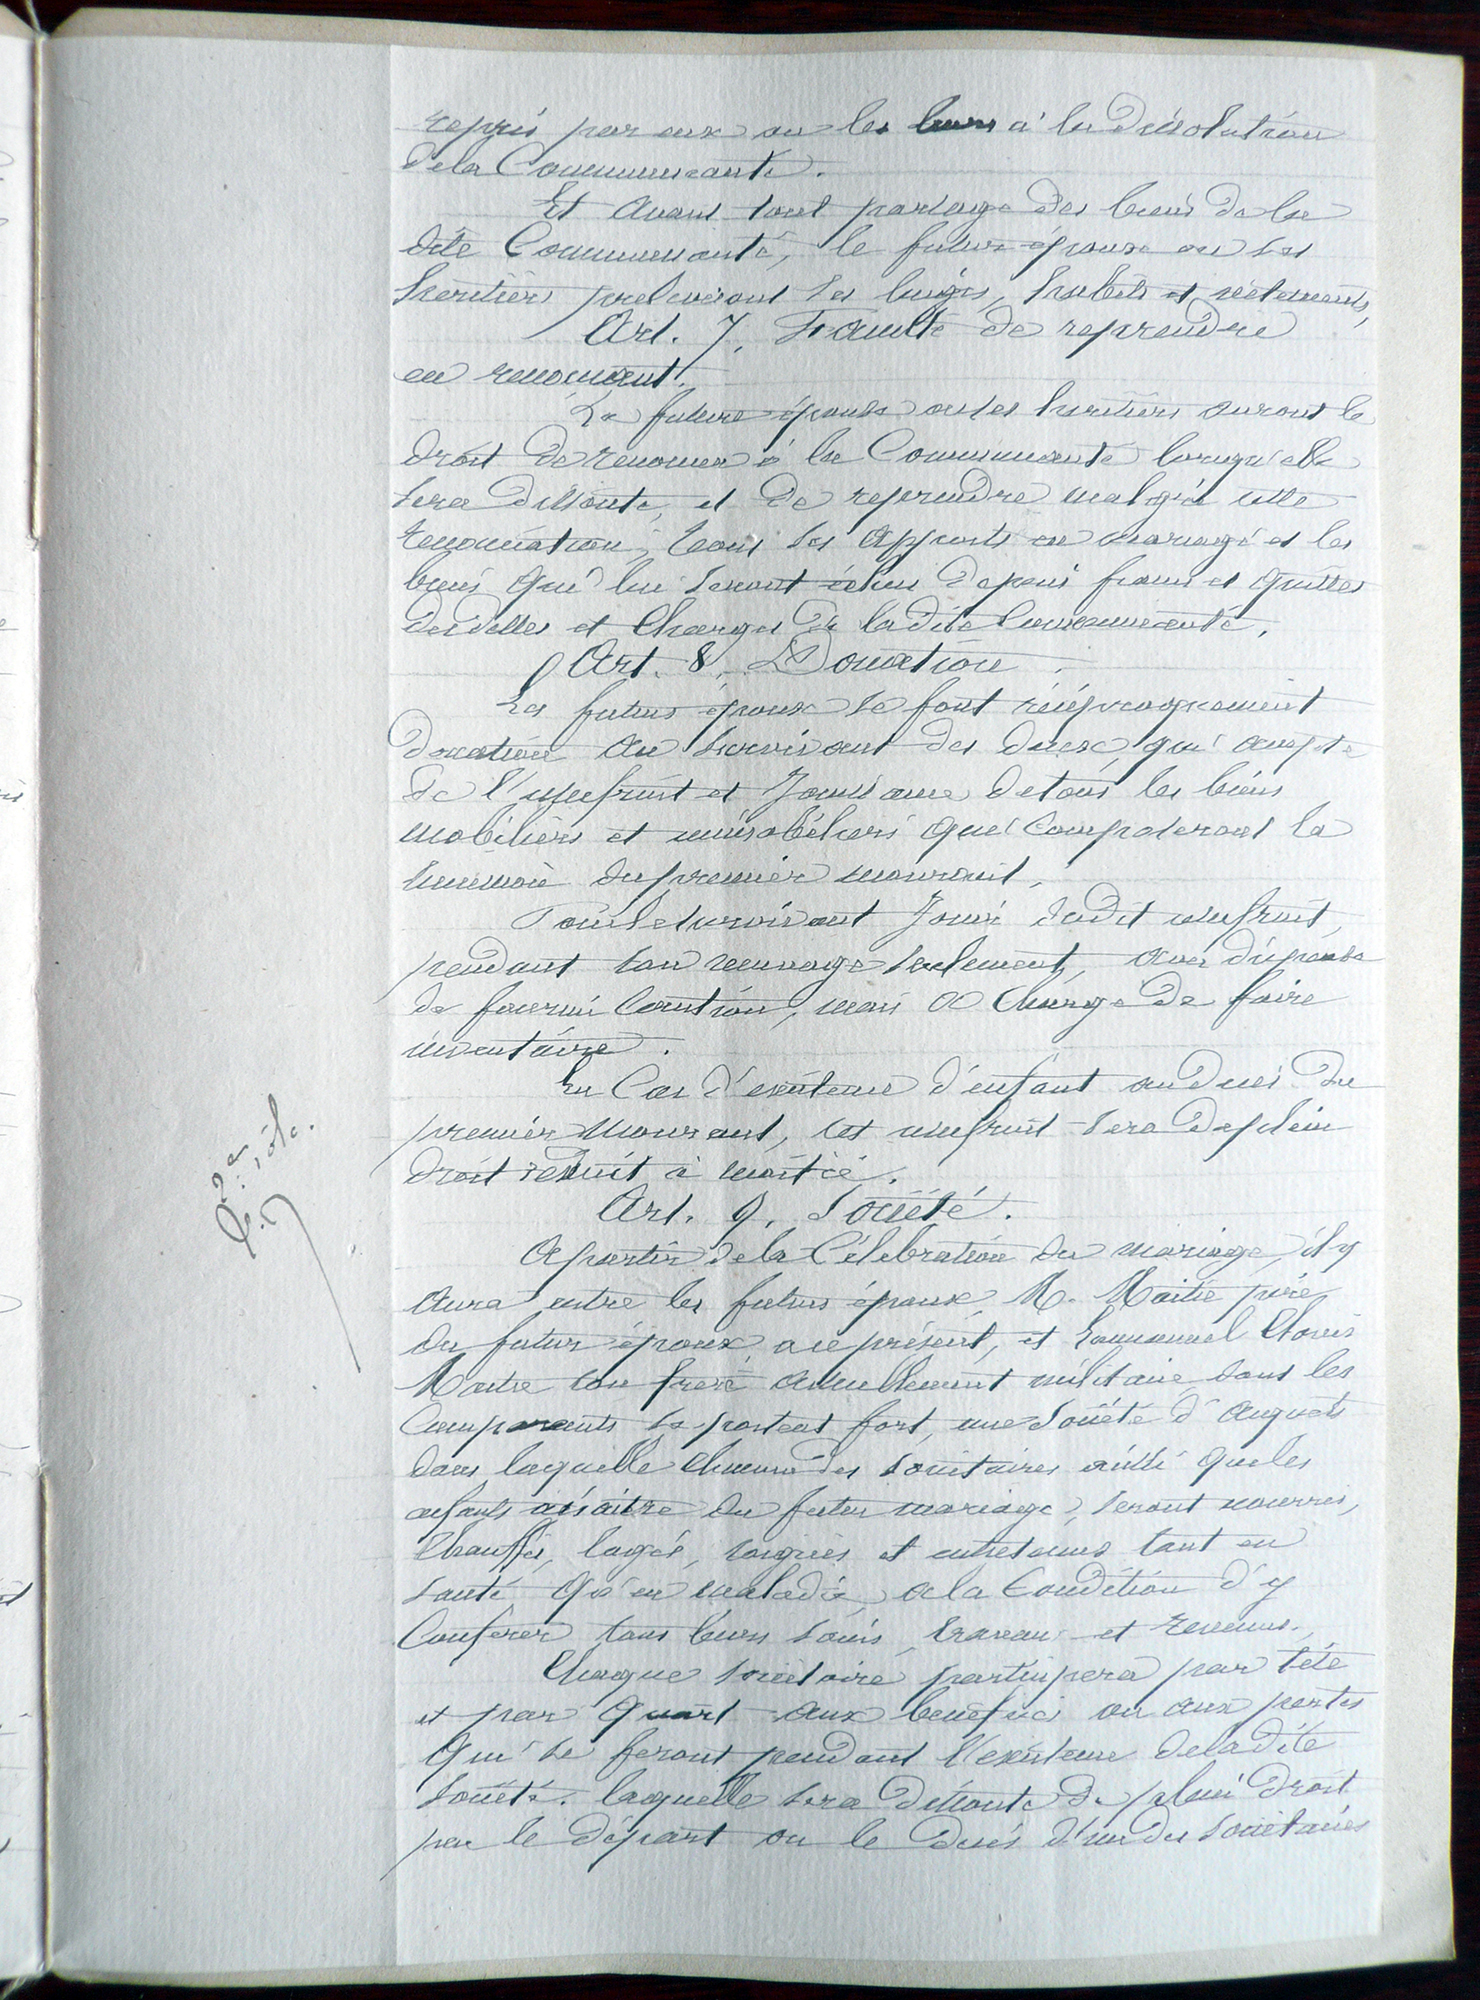 repris par eux ou les leurs à la dissolution
de la Communauté.
Et avant tout partage des biens de la
dite Communauté, le futur époux ou ses
héritiers préleveront ses linges, habits et vêtements,
Art. 7. Faculté de reprendre
en renonçant.
La future épouse ou ses héritiers auront le
droit de renoncer à la Communauté lorsqu'elle
sera dissoute, et de reprendre malgré cette
renonciation, tous ses apports en mariage et les
biens qui lui seront échus depuis francs et quittes
des dettes et charges de la dite Communauté.
Art. 8. Donation.
Les futurs époux se font réciproquement
donation au survivant des deux, qui accepte
de l'usufruit et jouissance de tous les biens
mobiliers et immobiliers qui composeront la
succession du premier mourant.
Pour le survivant jouir dudit usufruit,
pendant son veuvage seulement, avec dispense
de fournir caution, mais à charge de faire
inventaire.
En cas d'existence d'enfant au décès du
premier mourant, cet usufruit sera de plein
droit réduit à moitié.
Art. 9. Société.
A partir de la célébration du mariage, il y
aura entre les futurs époux, M. Maitre père
du futur époux a ce présent, et Emmanuel Clovis
Maitre son frère actuellement militaire, dont les
comparants se portent fort, une société d'acquêts
dans laquelle chacun des sociétaires aussi que les
enfants à naitre du futur mariage, seront nourris,
chauffés, logés, soignés et entretenus tant en
santé qu'en maladie, a la condition d'y
conférer tous leurs soins, travaux et revenus.
Chaque sociétaire participera par tête
et par quart aux bénéfices ou aux pertes
qui se feront pendant l'existence de la dite
société, laquelle sera dissoute de plein droit
par le départ ou le décès d'un des sociétaires
2e rôle.